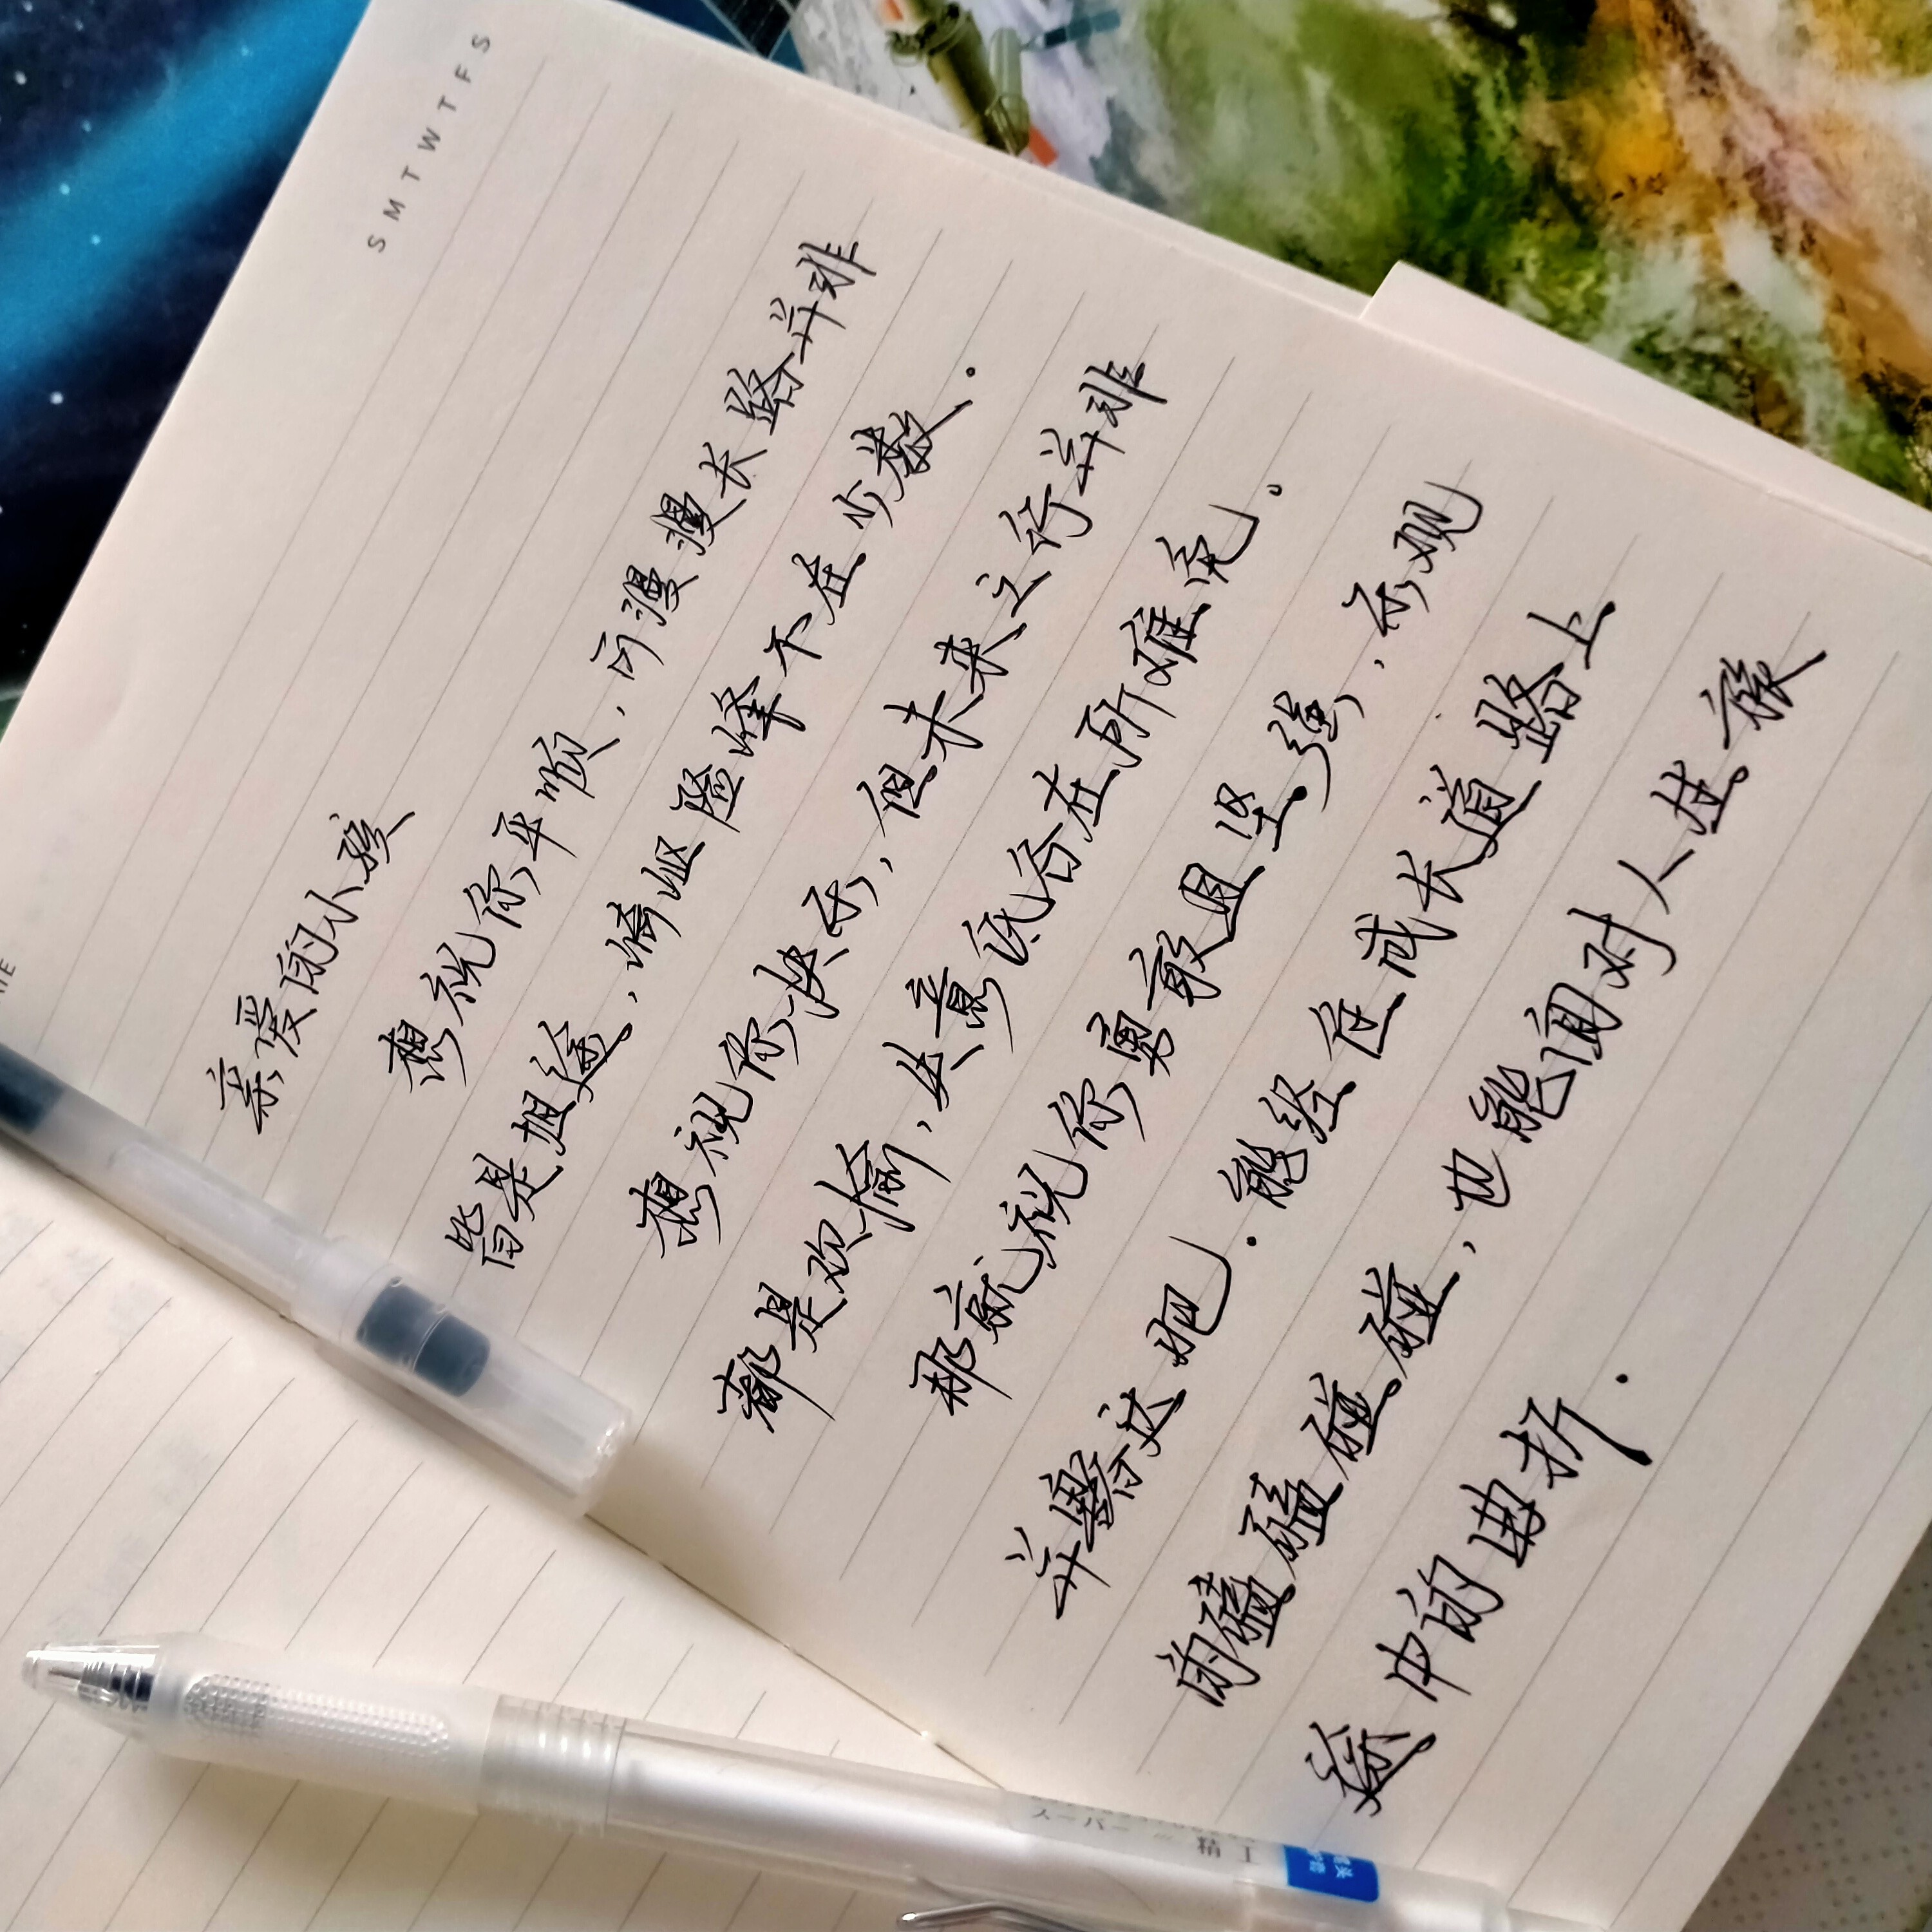 S M T W T F S
亲爱的小孩
想祝你平顺，可漫漫长路并非
皆是坦途，崎岖险峰不在少数.
想祝你快乐，但未来之行并非
都是欢愉，失意低谷在所难免。
那就祝你勇敢且坚强，乐观
并豁达吧.能经住成长道路上
的磕磕碰碰，也能面对人生旅
旅中的曲折.
スーパー
精工